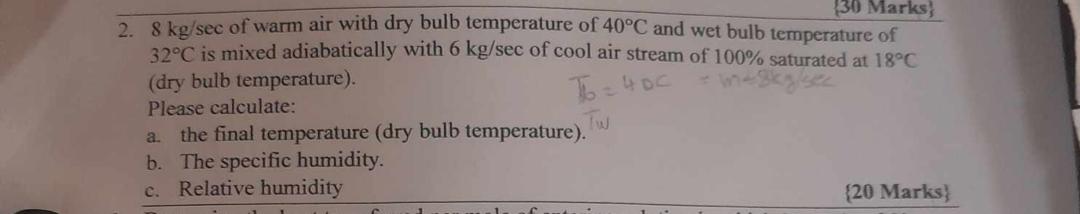 {30 Marks}
2. 8 kg/sec of warm air with dry bulb temperature of 40°C and wet bulb temperature of
32°C is mixed adiabatically with 6 kg/sec of cool air stream of 100% saturated at 18°C
(dry bulb temperature).
Tb = 40C = m=8kg/sec
Please calculate:
Tw
a. the final temperature (dry bulb temperature).
b. The specific humidity.
c. Relative humidity
{20 Marks}